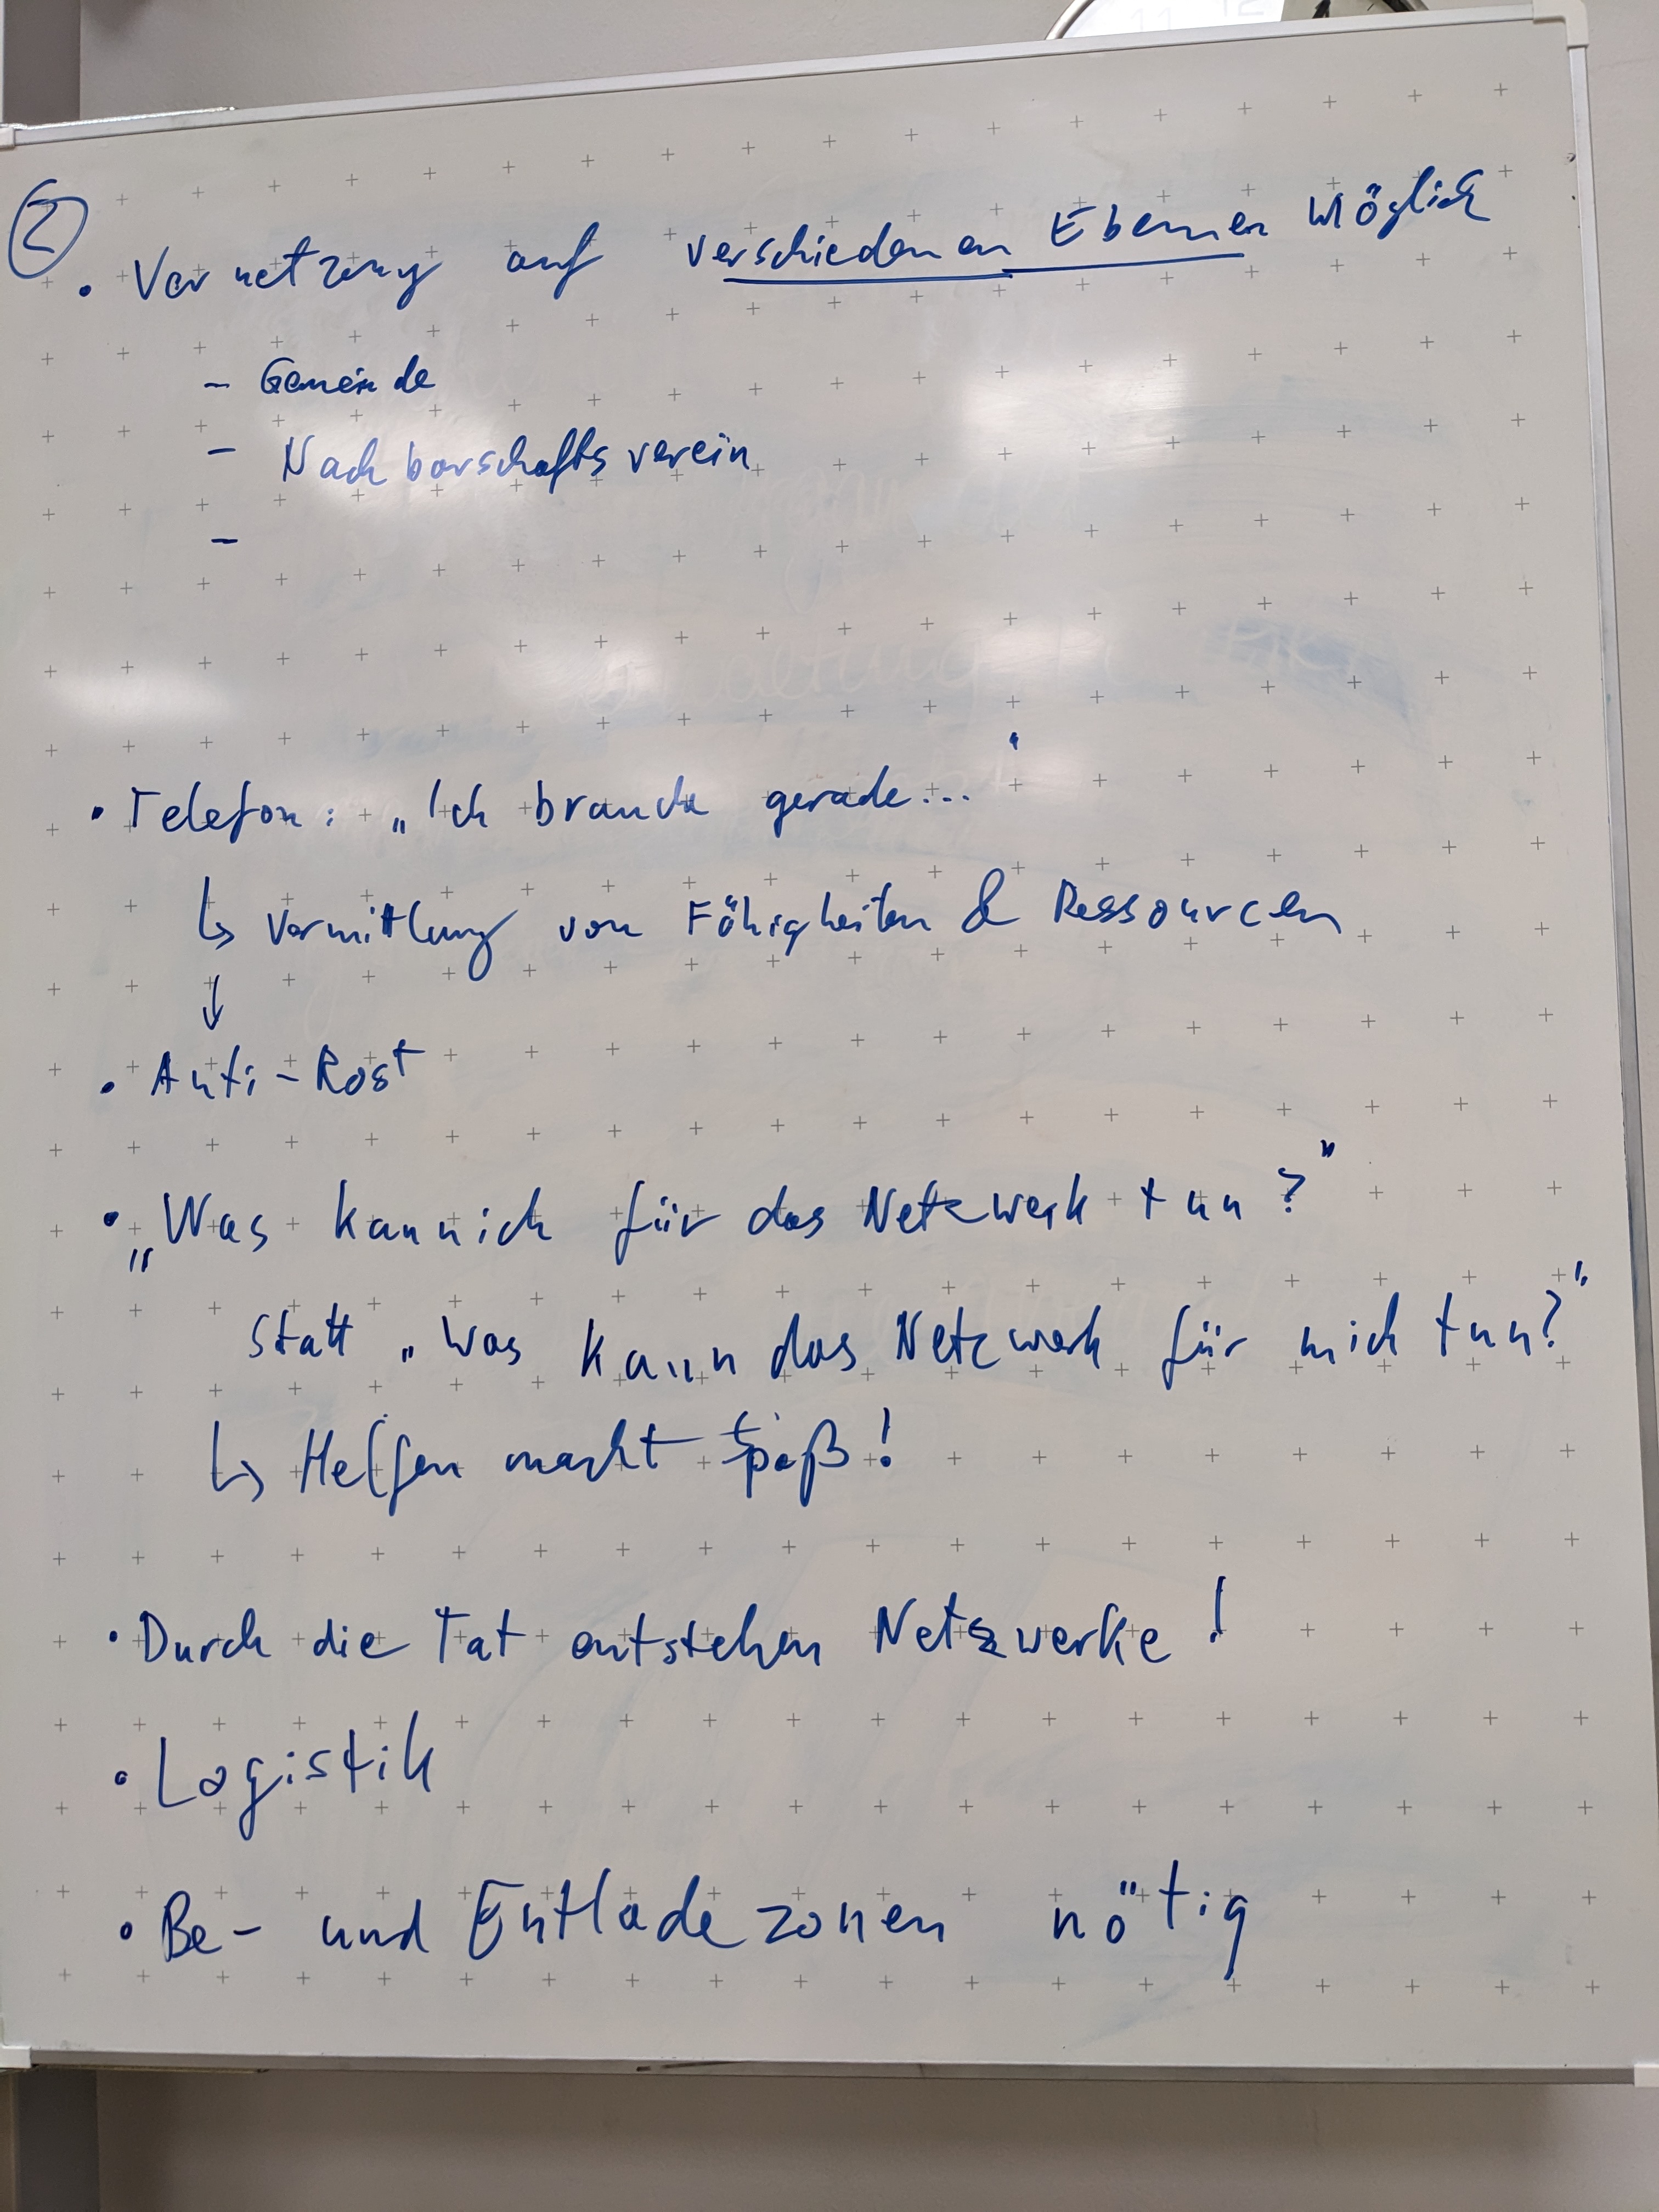 ②
• Vernetzung auf verschiedenen Ebenen möglich
– Gemeinde
– Nachbarschaftsverein
–
• Telefon: „Ich brauche gerade..."
↳ Vermittlung von Fähigkeiten & Ressourcen
↓
• Anti-Rost
• „Was kann ich für das Netzwerk tun?"
Statt „Was kann das Netzwerk für mich tun?"
↳ Helfen macht Spaß!
• Durch die Tat entstehen Netzwerke!
• Logistik
• Be- und Entladezonen nötig